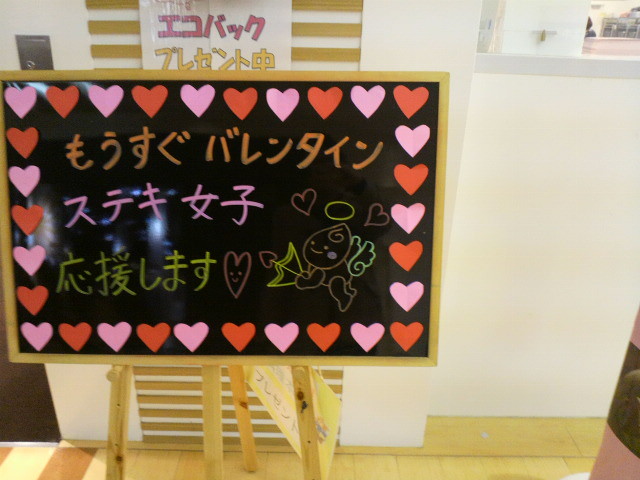 エコバック
プレゼント中
もうすぐ バレンタイン
ステキ 女子
応援します
プレゼント